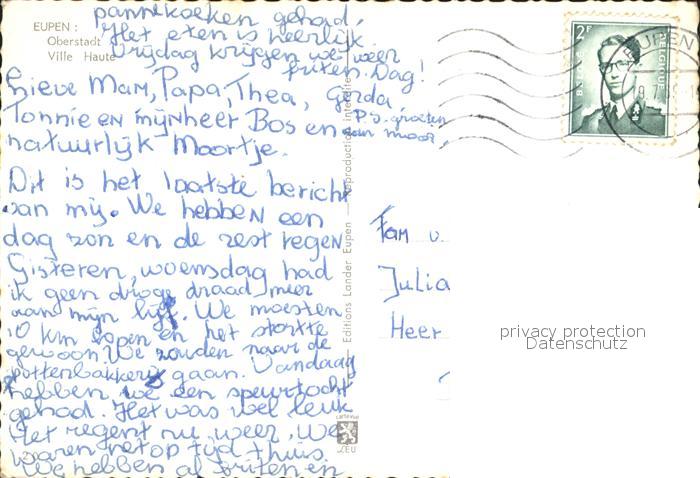 EUPEN :
Oberstadt
Ville Haute
Lieve Mam, Papa, Thea, Gerda
Tonnie en mijnheer Bos en
natuurlijk Moortje.
Dit is het laatste bericht
van mij. We hebben een
dag zon en de rest regen
Gisteren, woensdag had
ik geen droge draad meer
aan mijn lijf. We moesten
10 km lopen en het stortte
gewoon. We zouden naar de
pottenbakkerij gaan. Vandaag
hebben we een speurtocht
gehad. Het was wel leuk
Het regent nu weer. We
waren net op tijd thuis.
We hebben al friten en
pannekoeken gehad.
Het eten is heerlijk
Vrijdag krijgen we weer
friten. Dag!
P.S. groeten
aan moor,
Editions Lander Eupen
Reproduction interdite
cartevue
LEU
2F
BELGIQUE
EUPEN
Fam v.
Julia
Heer
privacy protection
Datenschutz